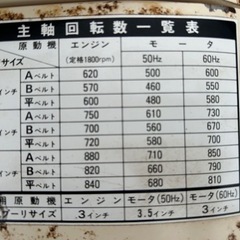 主軸回転数一覧表
原動機 エンジン モータ
サイズ (定格1800rpm) 50Hz 60Hz
Aベルト 620 500 600
インチ Bベルト 570 460 550
平ベルト 600 480 580
Aベルト 740 600 710
インチ Bベルト 680 550 660
平ベルト 720 580 700
Aベルト 880 710 850
インチ Bベルト 820 660 790
平ベルト 840 680 810
用原動機 エンジン モータ(50Hz) モータ(60Hz)
プーリサイズ 3インチ 3.5インチ 3インチ